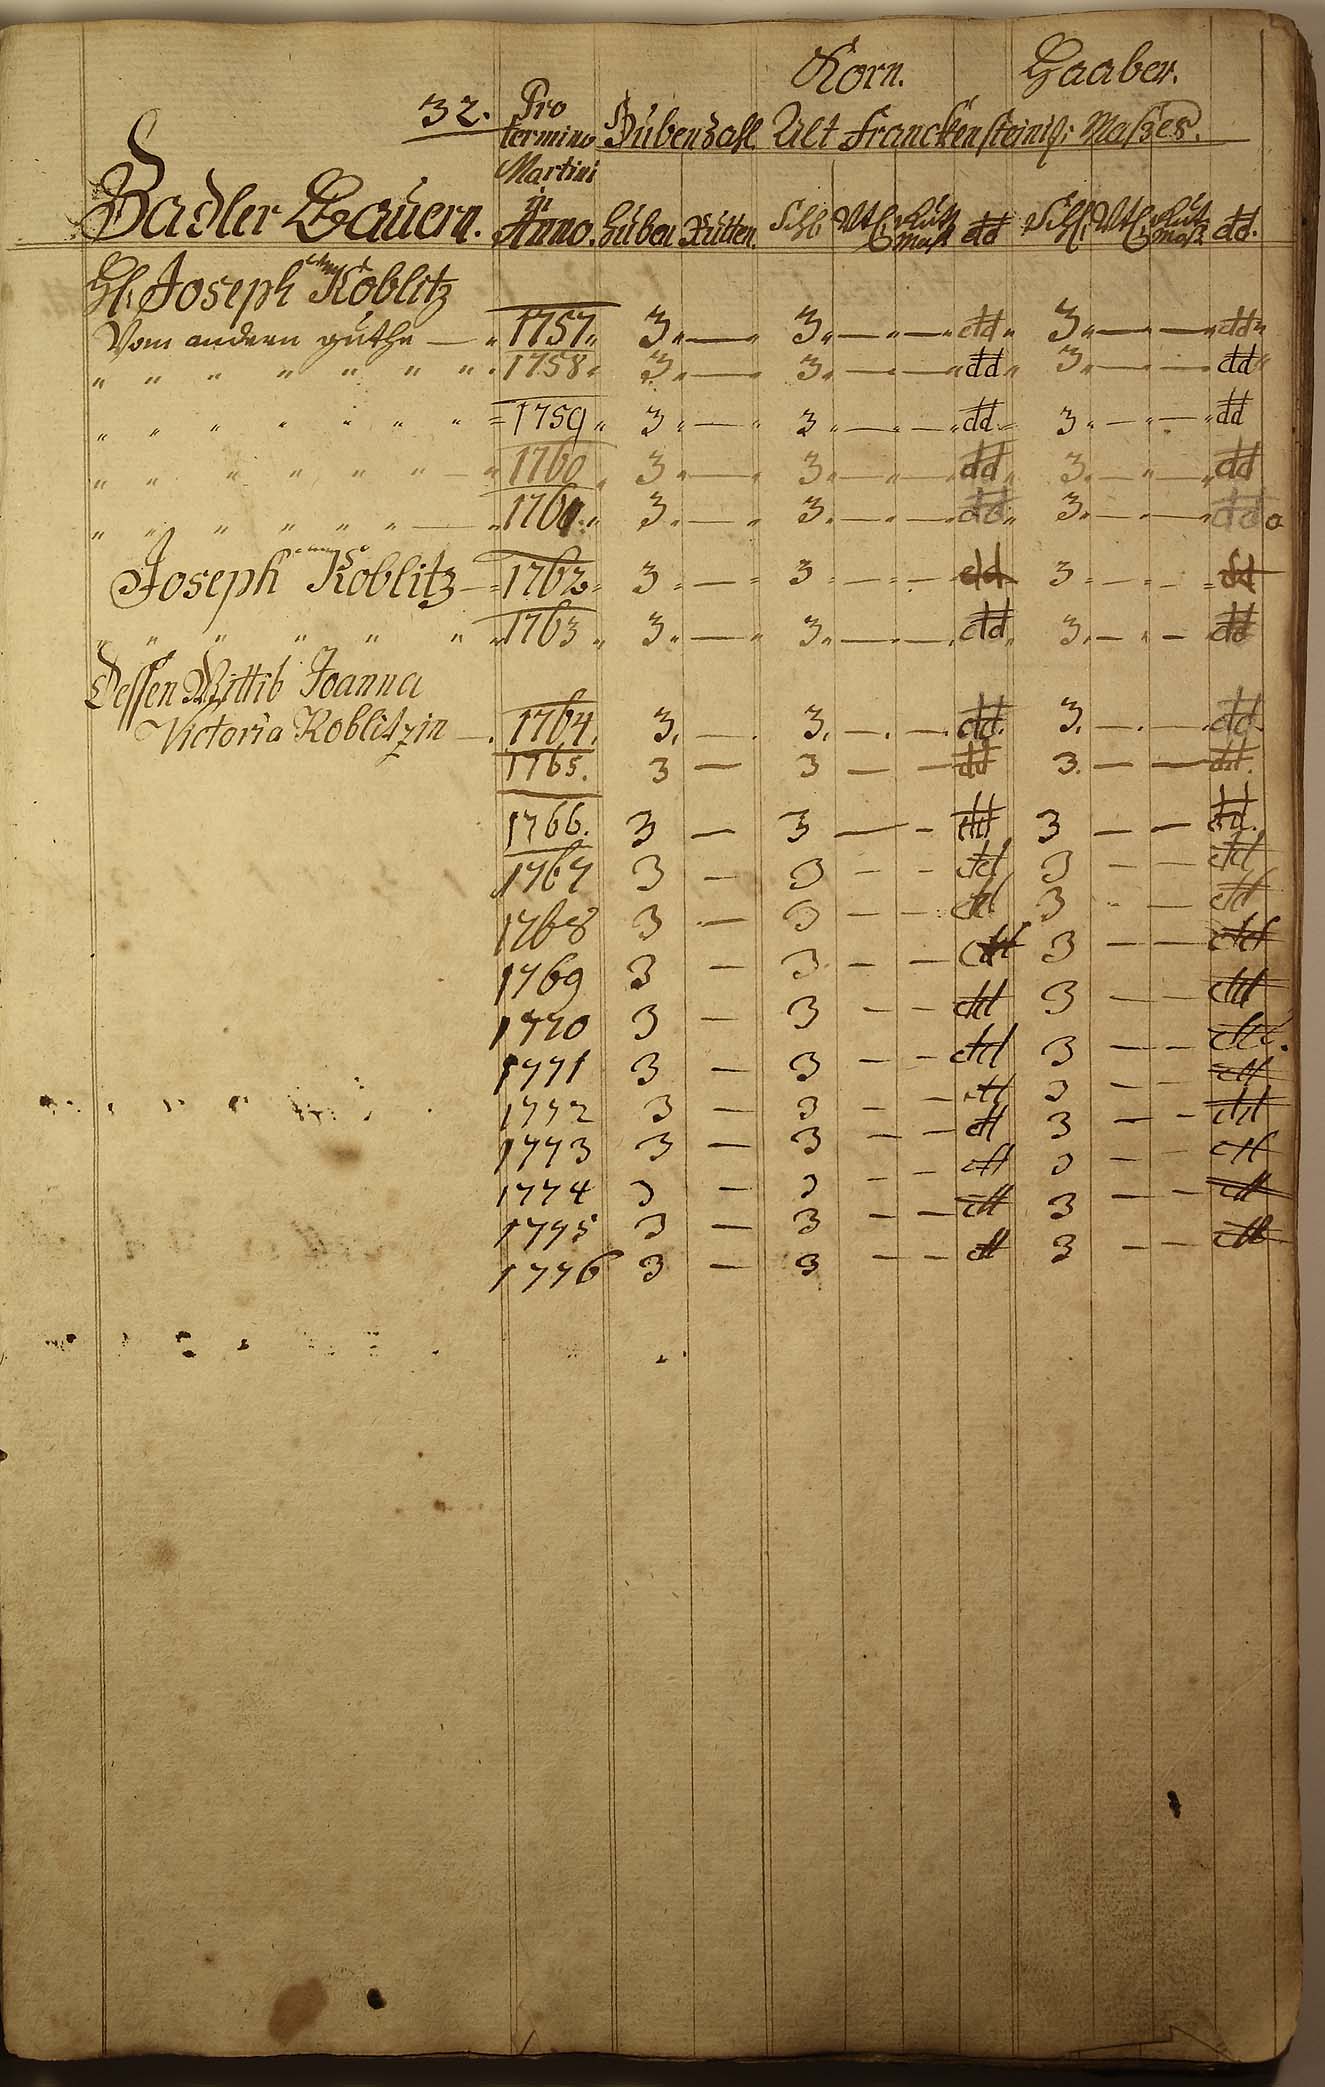 Korn. Haaber.
32. Pro
termino Hubenzahl Alt Franckensteinis: Maßes.
Martini
in
Zadler Bauern. Anno. Huben Rutten. Schl: Vtl: Mäß dd Schl: Vtl: Maß dd.
H: Joseph Koblitz
Vom andern guthe — " 1757 " 3 " — " 3 " — " — " dd " 3 " — " — " dd "
" " " " " " " 1758 " 3 " — " 3 " — " — " dd " 3 " — " — " dd "
" " " " " " " 1759 " 3 " — " 3 " — " — " dd " 3 " — " — " dd
" " " " " " — " 1760 " 3 " — " 3 " — " — " dd " 3 " — " — " dd
" " " " " " — " 1761 " 3 " — " 3 " — " — " dd " 3 " — " — " dd
Joseph Koblitz — 1762 " 3 " — " 3 " — " — dd 3 " — " — " dd
" " " " " " 1763 " 3 " — " 3 " — " — dd " 3 " — " — " dd
Dessen Wittib Joanna
Victoria Koblitzin — . 1764. 3. — . 3. — . — . dd. 3. — . — . dd.
1765. 3 — 3 — — dd 3. — — dd.
1766. 3 — 3 — — dd 3 — — dd.
1767 3 — 3 — — dd 3 — — dd
1768 3 — 3 — — dd 3 — — dd
1769 3 — 3 — — dd 3 — — dd
1770 3 — 3 — — dd 3 — — dd
1771 3 — 3 — — dd 3 — — dd.
1772 3 — 3 — — dd 3 — — dd
1773 3 — 3 — — dd 3 — — dd
1774 3 — 3 — — dd 3 — — dd
1775 3 — 3 — — dd 3 — — dd
1776 3 — 3 — — dd 3 — — dd